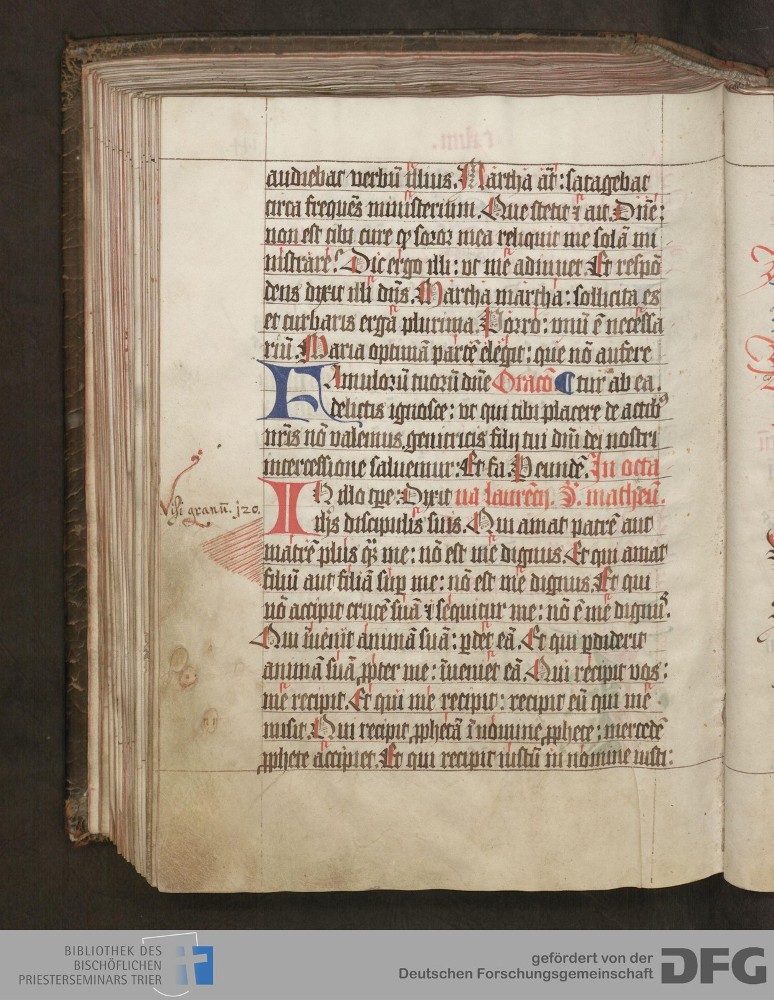 audiebat verbū illius. Martha āt: satagebat
circa frequēs ministerium. Que stetit ⁊ ait. Dn̄e:
non est tibi cure qꝫ soror mea reliquit me solā mi
nistrare? Dic ergo illi: vt me adiuuet. Et respō
dens dixit illi dn̄s. Martha martha: sollicita es
et turbaris erga plurima. Porro: vnū ē necessa
riū. Maria optimā partē elegit: que nō aufere
FAmulorū tuorū dn̄e Oracō ¶ tur ab ea.
delictis ignosce: vt qui tibi placere de actibꝰ
nr̄is nō valemus, genitricis filij tui dn̄i dei nostri
intercessione saluemur: Et fa. Peundē. In octa
IN illo tꝑe: Dixit ua laurēcij. S. matheū.
ih̄s discipulis suis. Qui amat patrē aut
Visi granū. 120.
matrē plus qͣꝫ me: nō est me dignus. Et qui amat
filiū aut filiā suꝑ me: nō est me dignus. Et qui
nō accipit crucē suā ⁊ sequitur me: nō ē me dignuꝰ.
Qui īuenit animā suā: ꝑdet eā. Et qui ꝑdiderit
animā suā ꝓpter me: īueniet eā. Qui recipit vos:
me recipit. Et qui me recipit: recipit eū qui me
misit. Qui recipit ꝓphetā ī nomine ꝓphete: mercedē
ꝓphete accipiet. Et qui recipit iustū in nomine iusti:
BIBLIOTHEK DES
BISCHÖFLICHEN
PRIESTERSEMINARS TRIER
gefördert von der
Deutschen Forschungsgemeinschaft
DFG